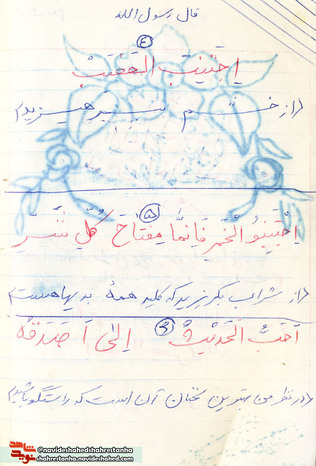 قال رسول الله
٤
اِجتَنِبِ الغَضَبَ
(از خشم بپرهیزید)
٥
اِجتَنِبُوا الخَمرَ فَاِنَّها مِفتاحُ کُلِّ شَرٍّ
(از شراب بگریزید که کلید همهٔ بدیهاست)
اَحَبُّ الحَدیثِ اِلَیَّ اَصدَقُهُ
(در نظر من بهترین سخنان آن است که راستگو باشید)
@navideshahedshahrestanha
shahrestanha.navideshahed.com